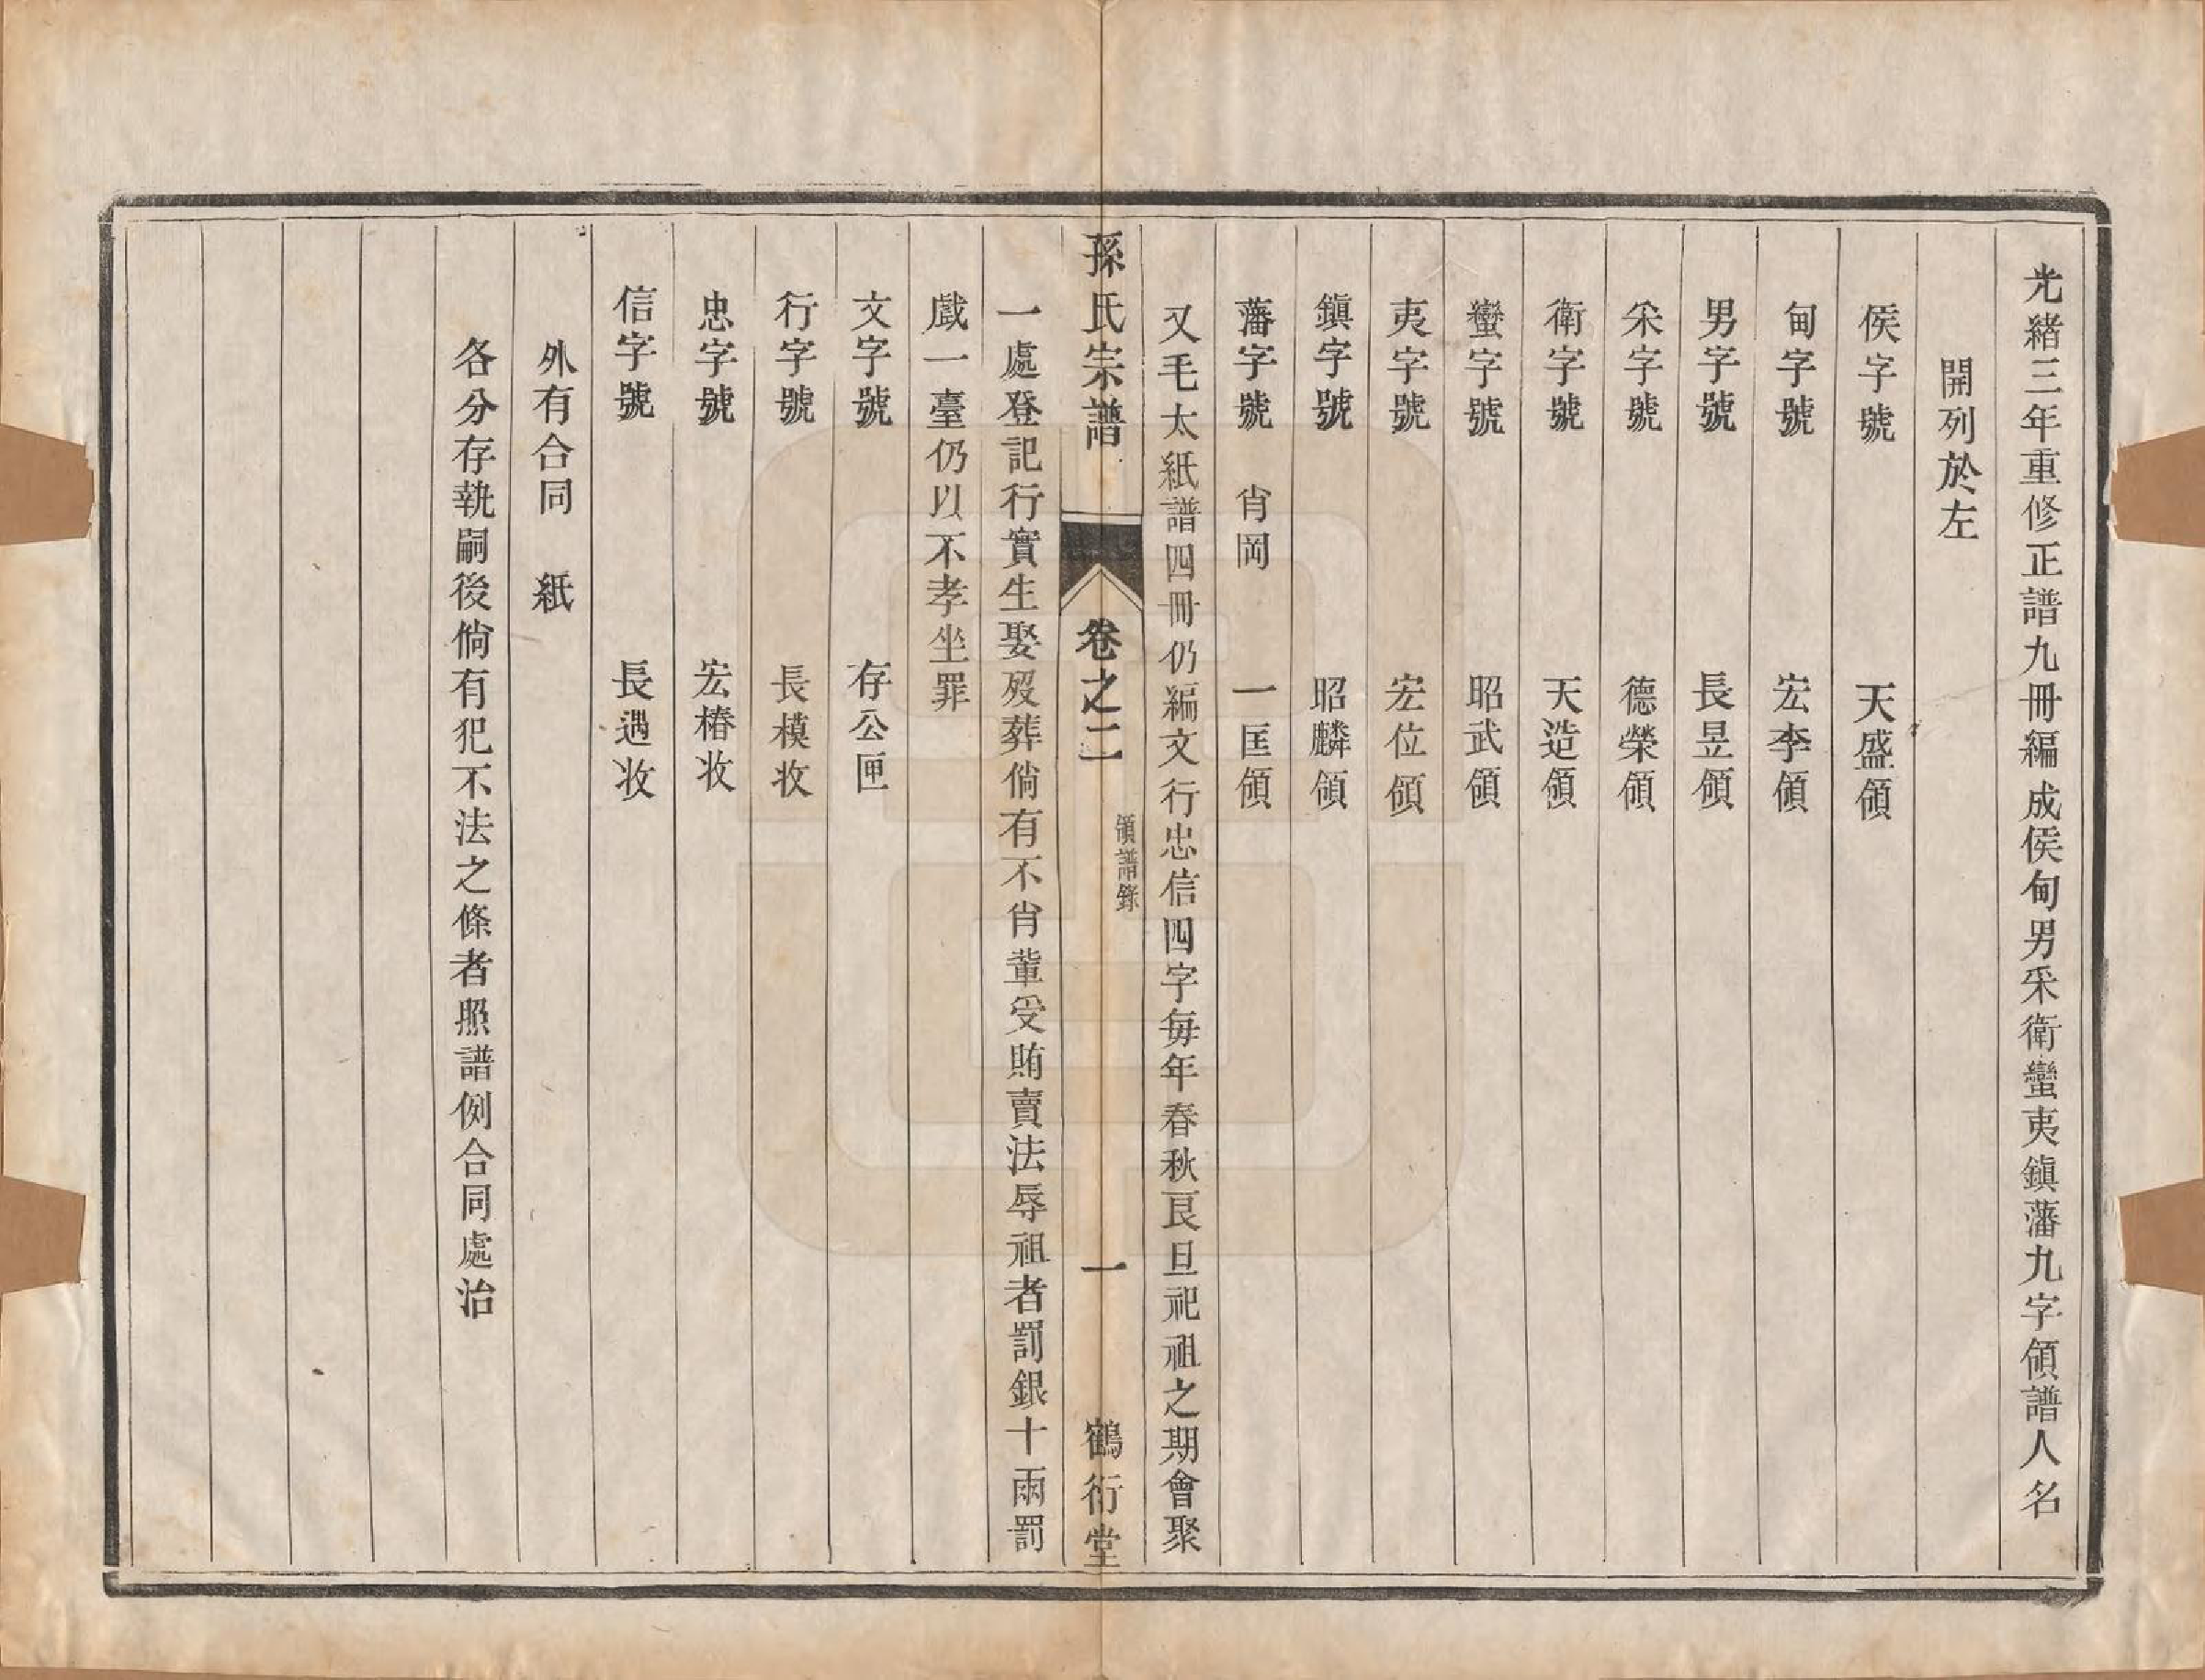 光緒三年重修正譜九冊編成侯甸男采衛蠻夷鎭藩九字領譜人名
開列於左
侯字號　天盛領
甸字號　宏李領
男字號　長昱領
采字號　德榮領
衛字號　天造領
蠻字號　昭武領
夷字號　宏位領
鎭字號　昭麟領
藩字號　肯岡　一匡領
又毛太紙譜四冊仍編文行忠信四字每年春秋艮旦祀祖之期會聚
孫氏宗譜　卷之二　領譜錄　一　鶴衍堂
一處登記行實生娶歿葬倘有不肖輩受賄賣法辱祖者罰銀十兩罰
戲一臺仍以不孝坐罪
文字號　存公匣
行字號　長模收
忠字號　宏樁收
信字號　長遇收
外有合同　紙
各分存執嗣後倘有犯不法之條者照譜例合同處治